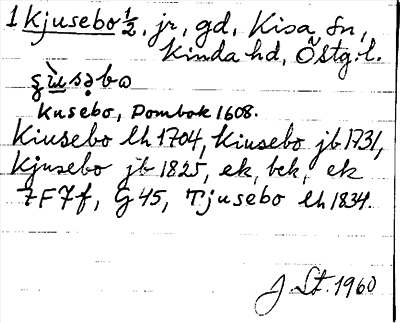 1 Kjusebo ½, jr, gd, Kisa sn,
Kinda hd, Östg. l.
Kusebo, Dombok 1608.
Kiusebo lh 1704, Kiusebo jb 1731,
Kjusebo jb 1825, ek, bek, ek
7F7f, G 45, Tjusebo lh 1834.
J. St. 1960